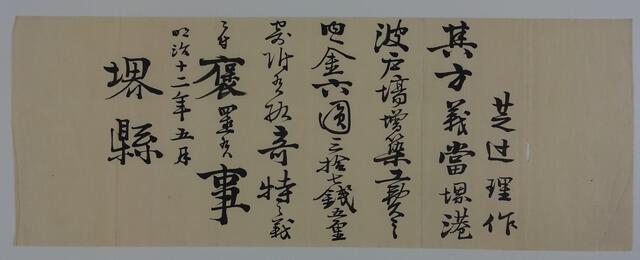 芝辻理作
其方義當堺港
波戸塲増築工費之
金六圓三拾七銭五厘
寄附候段奇特之義
ニ付褒置候事
明治十二年五月
堺縣